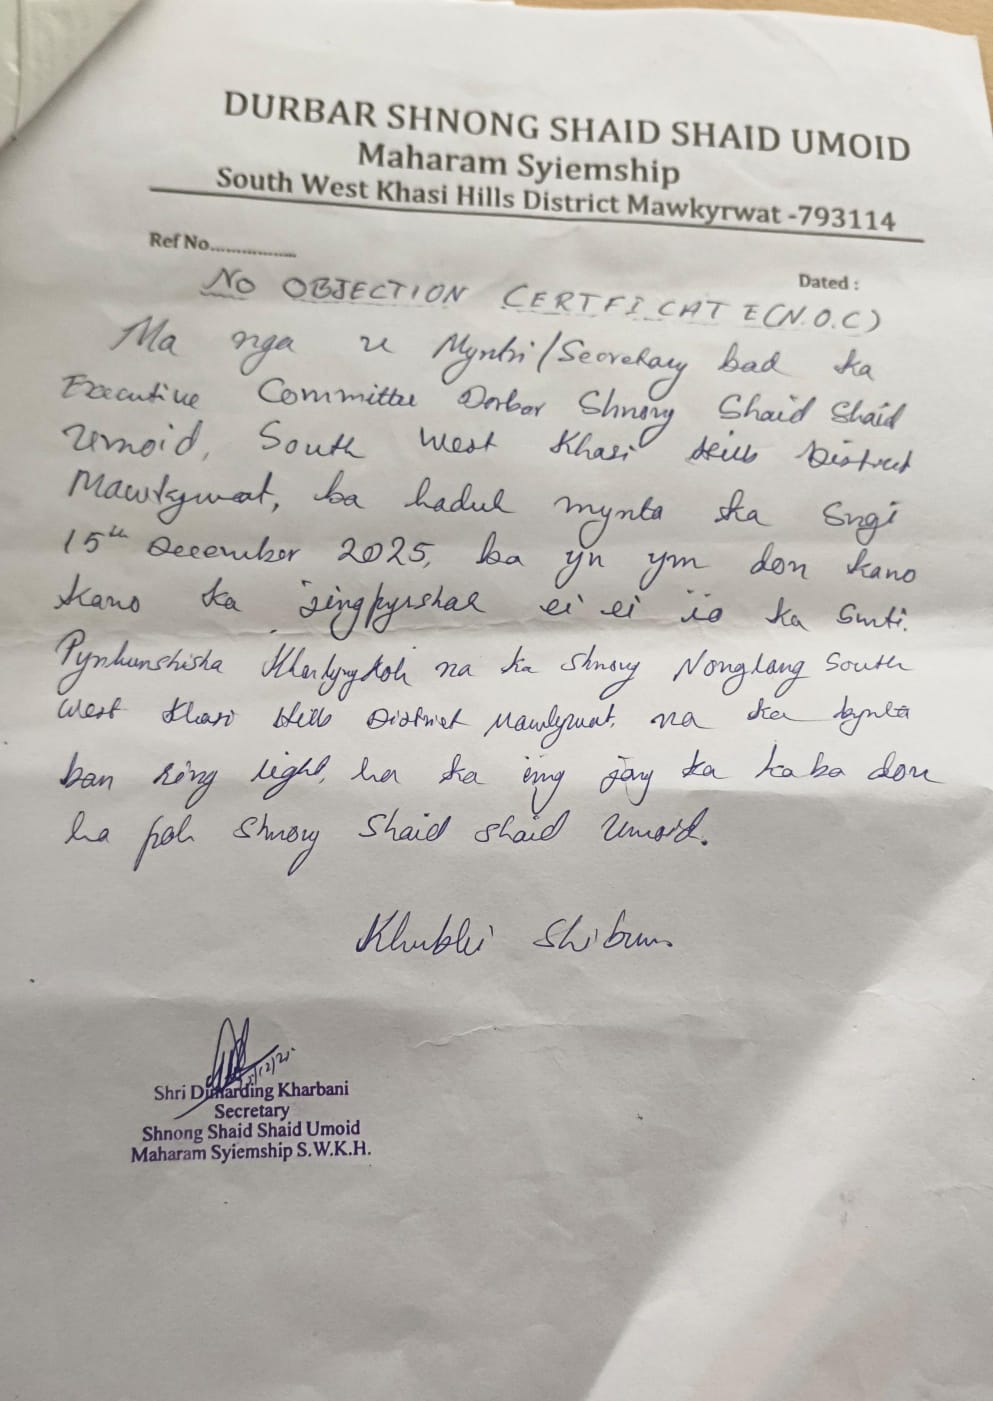 DURBAR SHNONG SHAID SHAID UMOID
Maharam Syiemship
South West Khasi Hills District Mawkyrwat -793114
Ref No..................
Dated :
NO OBJECTION CERTFICATE (N.O.C)
Ma nga u Myntri/Secretary bad ka
Executive Committee Dorbar Shnong Shaid Shaid
Umoid, South West Khasi Hills District
Mawkyrwat, ba haduh mynta ka Sngi
15th December 2025, ba yn ym don kano
kano ka jingpyrshah ei ei ïa ka Smti.
Pynhunshisha na ka Shnong Nonglang South
West Khasi Hills District Mawkyrwat, na ka bynta
ban ring light, ha ka ïing jong ka kaba don
ha poh Shnong Shaid Shaid Umoid.
Khublei Shibun
Shri Dimarding Kharbani
Secretary
Shnong Shaid Shaid Umoid
Maharam Syiemship S.W.K.H.